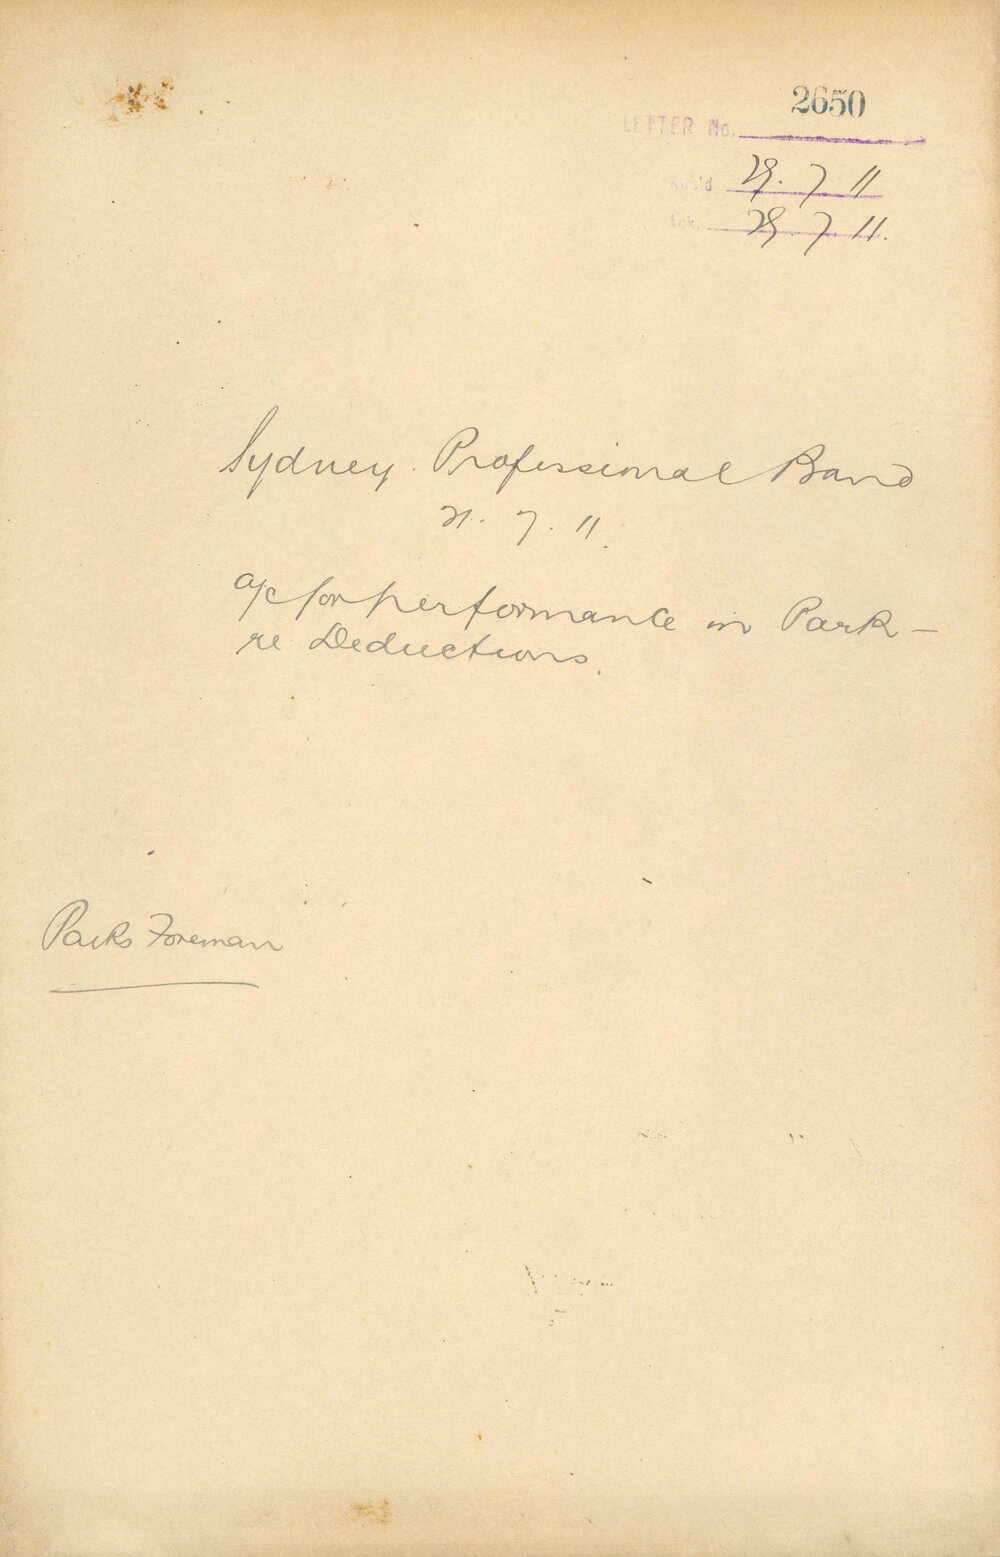 2650
LETTER No.
Rec'd 29. 7 11
Ack. 29. 7 11.
Sydney Professional Band
21. 7. 11.
a/c for performance in Park -
re Deductions.
Parks Foreman